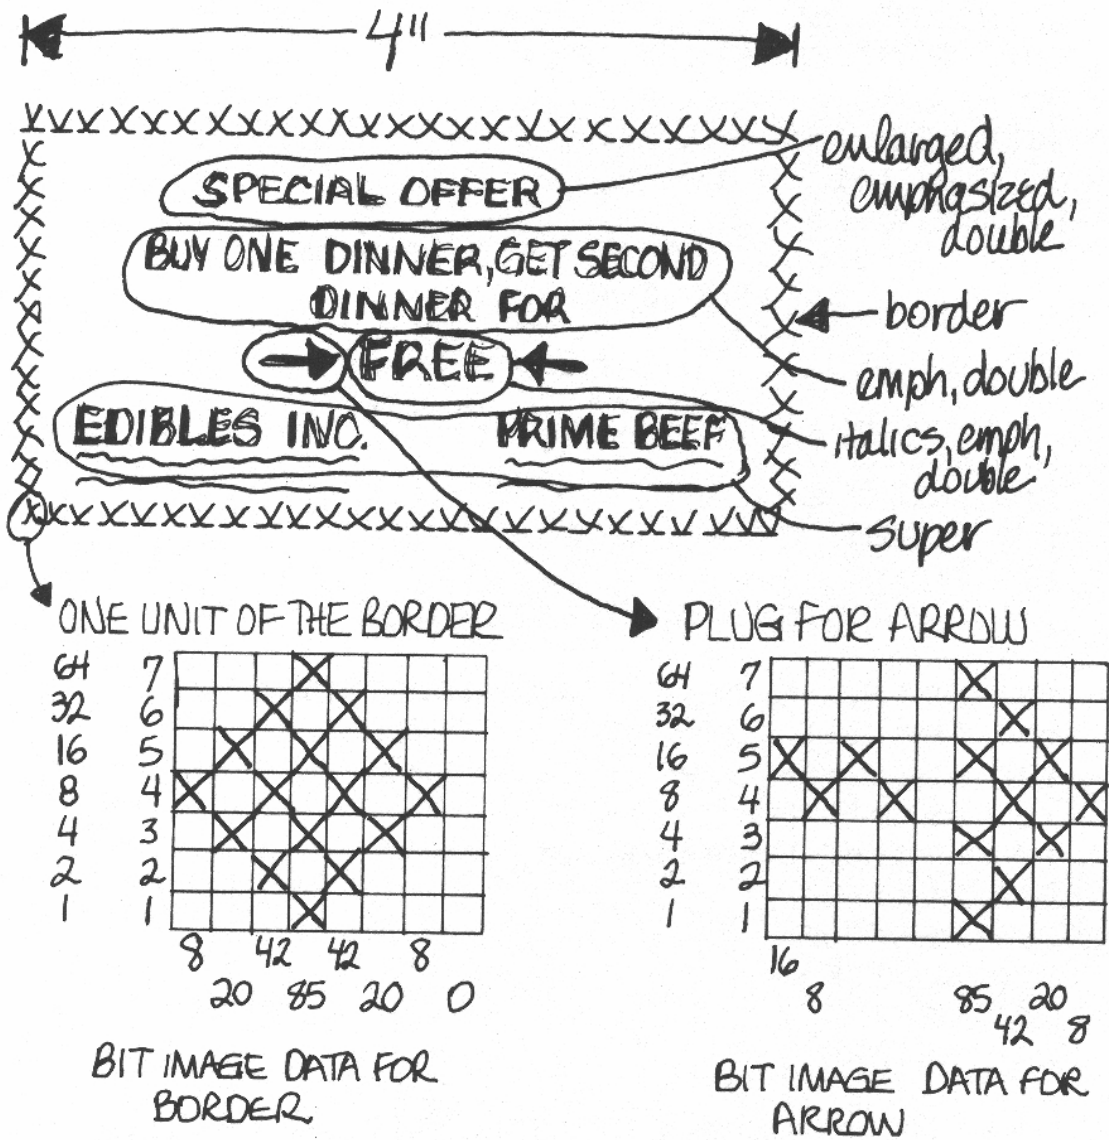 4"
SPECIAL OFFER
BUY ONE DINNER, GET SECOND
DINNER FOR
FREE
EDIBLES INC. PRIME BEEF
enlarged,
emphasized,
double
border
emph, double
italics, emph,
double
super
ONE UNIT OF THE BORDER
64 7
32 6
16 5
8 4
4 3
2 2
1 1
8 42 42 8
20 85 20 0
BIT IMAGE DATA FOR
BORDER
PLUG FOR ARROW
64 7
32 6
16 5
8 4
4 3
2 2
1 1
16
8 85 20
42 8
BIT IMAGE DATA FOR
ARROW